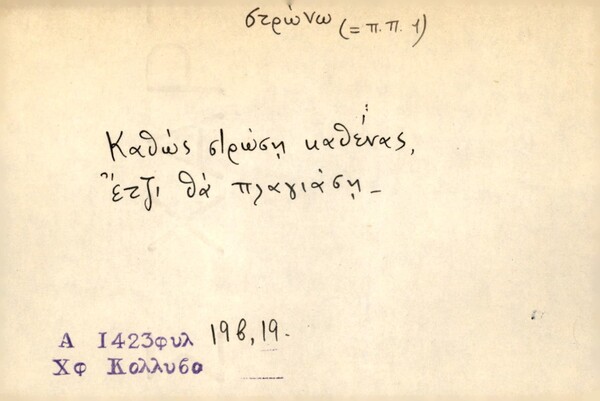 στρώνω (= π.π. 1)
Καθὼς στρώσῃ καθένας,
ἔτζι θὰ πλαγιάσῃ –
Α 1423φυλ 19β, 19.
Χφ Κολλυβα